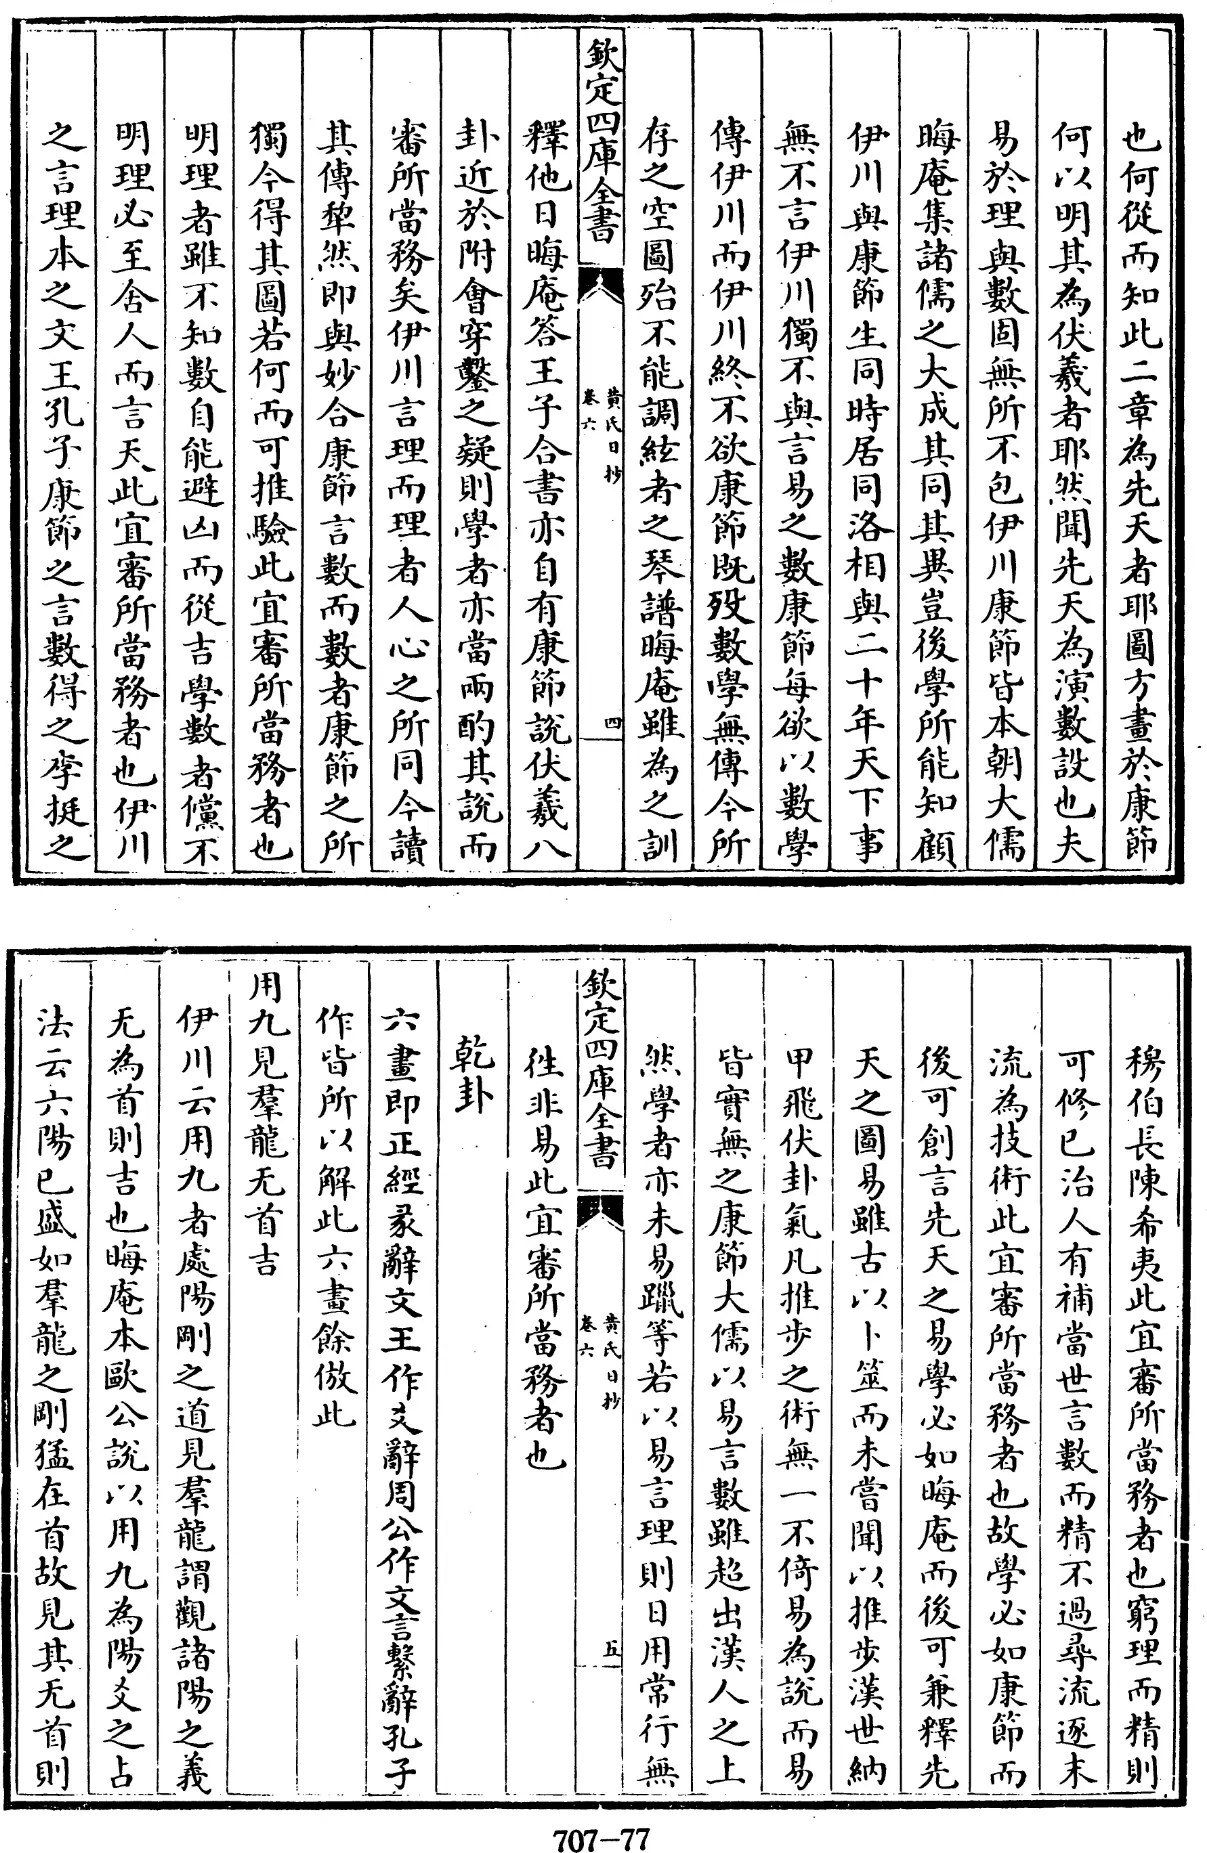 也何從而知此二章為先天者耶圖方畫於康節
何以明其為伏羲者耶然聞先天為演數設也夫
易於理與數固無所不包伊川康節皆本朝大儒
晦庵集諸儒之大成其同其異豈後學所能知顧
伊川與康節生同時居同洛相與二十年天下事
無不言伊川獨不與言易之數康節每欲以數學
傳伊川而伊川終不欲康節既歿數學無傳今所
存之空圖殆不能調絃者之琴譜晦庵雖為之訓
欽定四庫全書
黃氏日抄
卷六
四
釋他日晦庵答王子合書亦自有康節說伏羲八
卦近於附會穿鑿之疑則學者亦當兩酌其說而
審所當務矣伊川言理而理者人心之所同今讀
其傳犂然即與妙合康節言數而數者康節之所
獨今得其圖若何而可推驗此宜審所當務者也
明理者雖不知數自能避凶而從吉學數者儻不
明理必至舍人而言天此宜審所當務者也伊川
之言理本之文王孔子康節之言數得之李挺之
穆伯長陳希夷此宜審所當務者也窮理而精則
可修已治人有補當世言數而精不過尋流逐末
流為技術此宜審所當務者也故學必如康節而
後可創言先天之易學必如晦庵而後可兼釋先
天之圖易雖古以卜筮而未嘗聞以推步漢世納
甲飛伏卦氣凡推步之術無一不倚易為說而易
皆實無之康節大儒以易言數雖超出漢人之上
然學者亦未易躐等若以易言理則日用常行無
欽定四庫全書
黃氏日抄
卷六
五
往非易此宜審所當務者也
乾卦
六畫即正經彖辭文王作爻辭周公作文言繫辭孔子
作皆所以解此六畫餘倣此
用九見羣龍无首吉
伊川云用九者處陽剛之道見羣龍謂觀諸陽之義
无為首則吉也晦庵本歐公說以用九為陽爻之占
法云六陽已盛如羣龍之剛猛在首故見其无首則
707-77